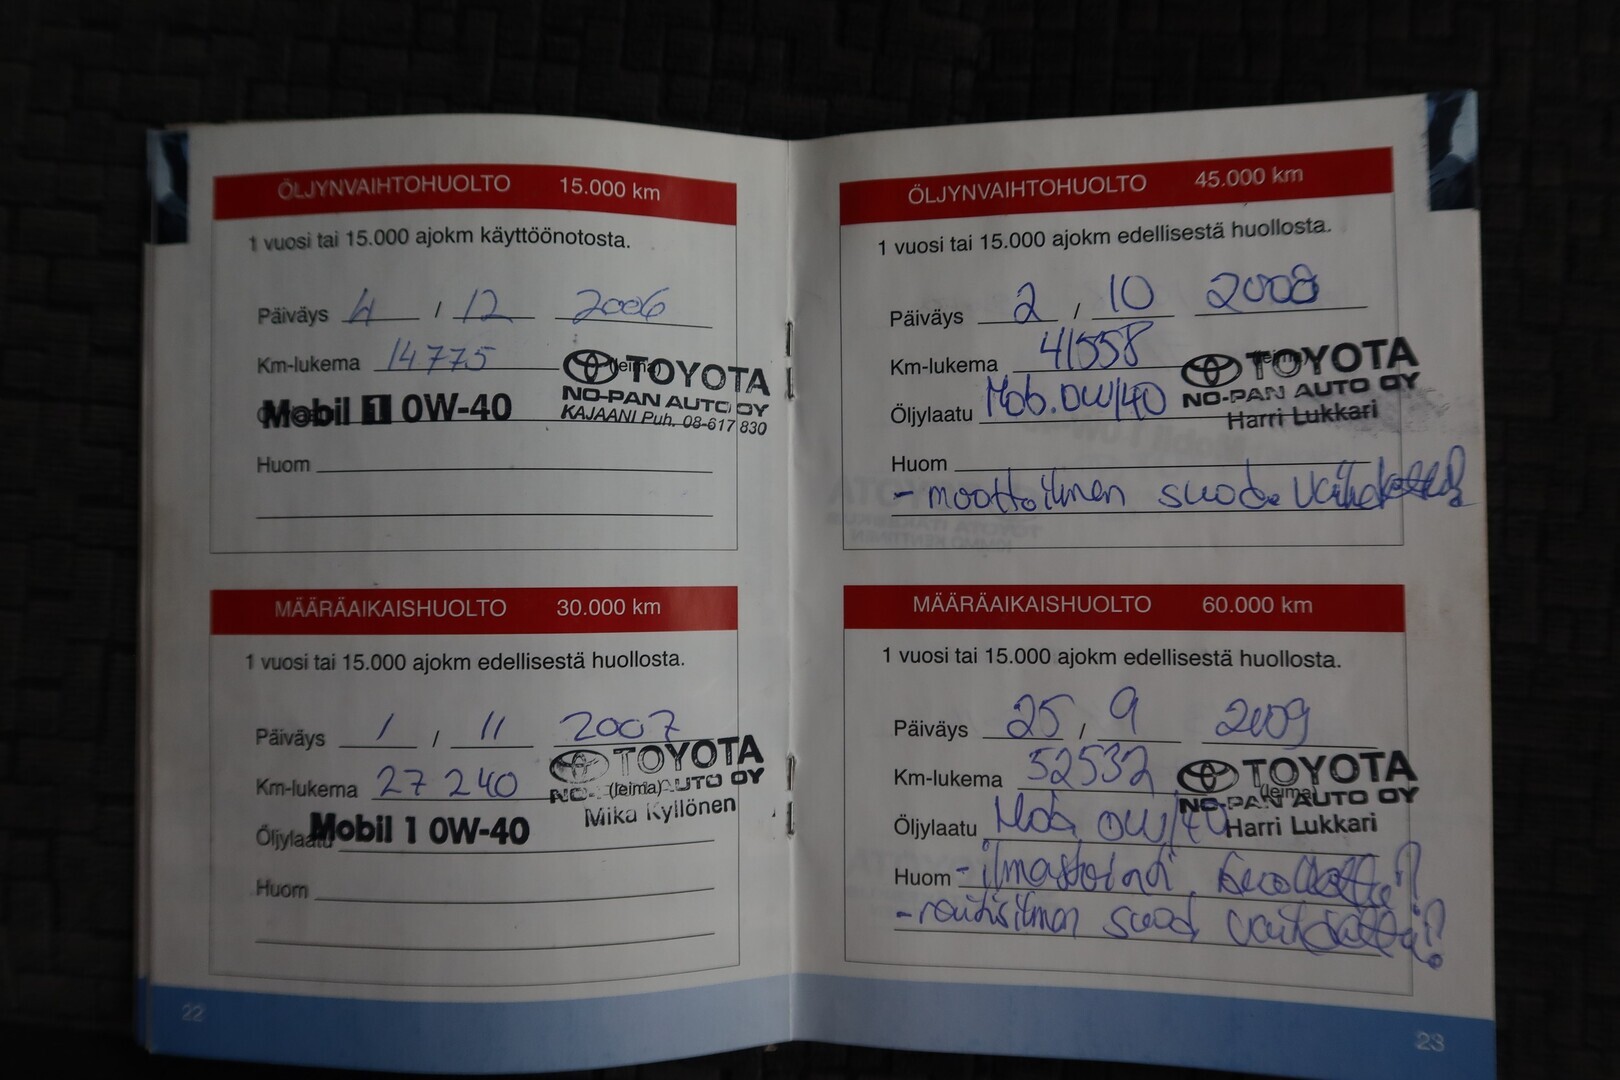 ÖLJYNVAIHTOHUOLTO 15.000 km
1 vuosi tai 15.000 ajokm käyttöönotosta.
Päiväys 4 / 12 2006
Km-lukema 14775
(leima)
TOYOTA
NO-PAN AUTO OY
KAJAANI Puh. 08-617 830
Mobil 1 0W-40
Huom
MÄÄRÄAIKAISHUOLTO 30.000 km
1 vuosi tai 15.000 ajokm edellisestä huollosta.
Päiväys 1 / 11 2007
Km-lukema 27 240
(leima)
TOYOTA
NO-PAN AUTO OY
Mika Kyllönen
Öljylaatu Mobil 1 0W-40
Huom
22
ÖLJYNVAIHTOHUOLTO 45.000 km
1 vuosi tai 15.000 ajokm edellisestä huollosta.
Päiväys 2 / 10 2008
Km-lukema 41558
(leima)
TOYOTA
NO-PAN AUTO OY
Harri Lukkari
Öljylaatu Mob. 0W/40
Huom
- moottoilman suod. vaihdettu
MÄÄRÄAIKAISHUOLTO 60.000 km
1 vuosi tai 15.000 ajokm edellisestä huollosta.
Päiväys 25 / 9 2009
Km-lukema 52532
(leima)
TOYOTA
NO-PAN AUTO OY
Harri Lukkari
Öljylaatu Mob 0W/40
Huom - ilmastointi huollettu
- raitisilman suod
23